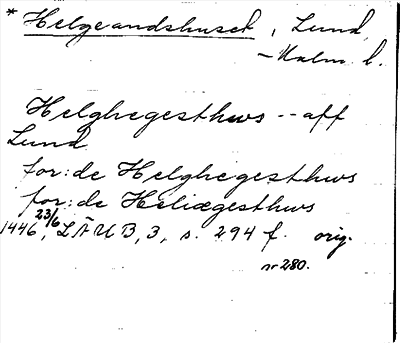 * Helgeandshuset, Lund,
– Malm. l.
Helghegesthws -- aff
Lund
for: de Helghegesthws
for: de Heliægesthws
23/6
1446, LÄUB, 3, s. 294 f. orig.
nr 280.